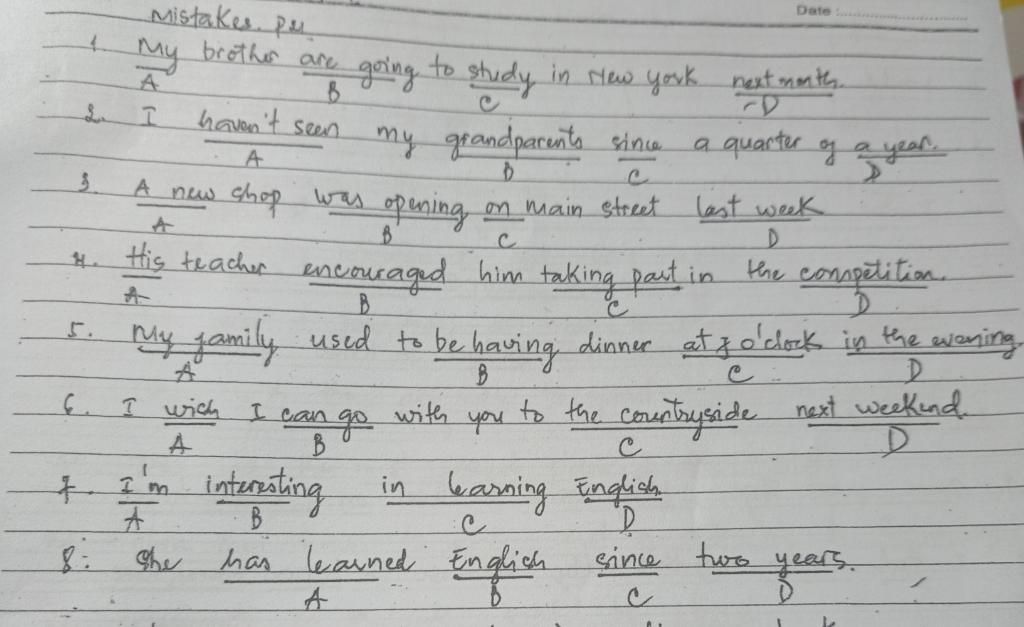 Date :
Mistakes. pu.
1. My brother are going to study in New york next month.
A B C D
2. I haven't seen my grandparents since a quarter of a year.
A B C D
3. A new shop was opening on main street last week
A B C D
4. His teacher encouraged him taking part in the competition.
A B C D
5. My family used to be having dinner at 7 o'clock in the evening
A B C D
6. I wich I can go with you to the countryside next weekend.
A B C D
7. I'm interesting in learning English
A B C D
8: She has learned English since two years.
A B C D